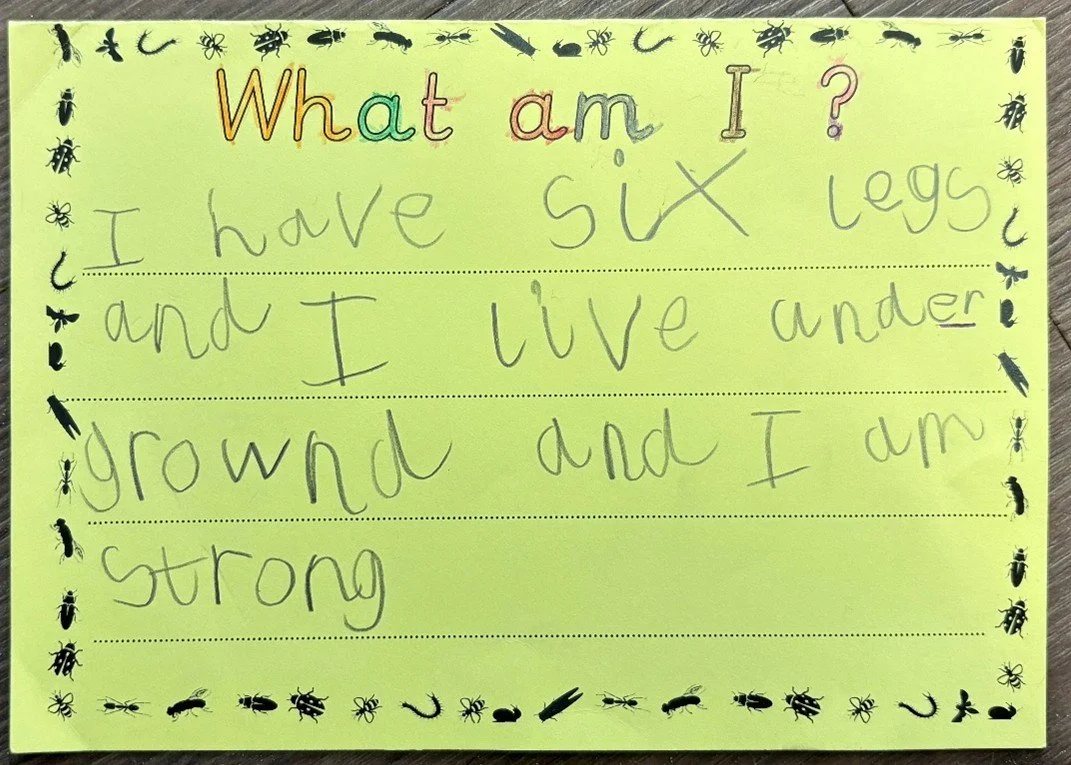 What am I ?
I have six legs
and I live under
grownd and I am
strong